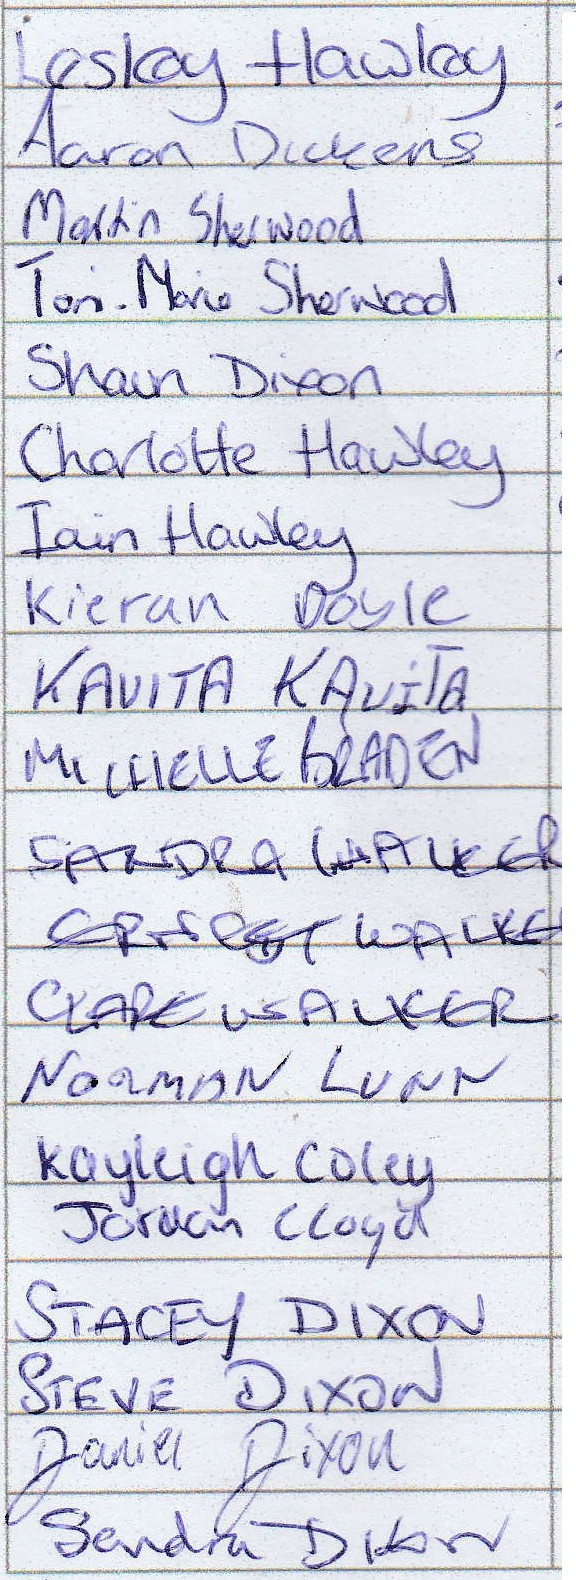 Lesley Hawley
Aaron Dickens
Martin Sherwood
Toni-Marie Sherwood
Shaun Dixon
Charlotte Hawley
Iain Hawley
Kieran Doyle
KAVITA KAVITA
MICHELLE BRADEN
SANDRA WALKER
ERNEST WALKER
CLARE WALKER
NORMAN LUNN
Kayleigh Coley
Jordan Lloyd
STACEY DIXON
STEVE DIXON
Daniel Dixon
Sandra Dixon